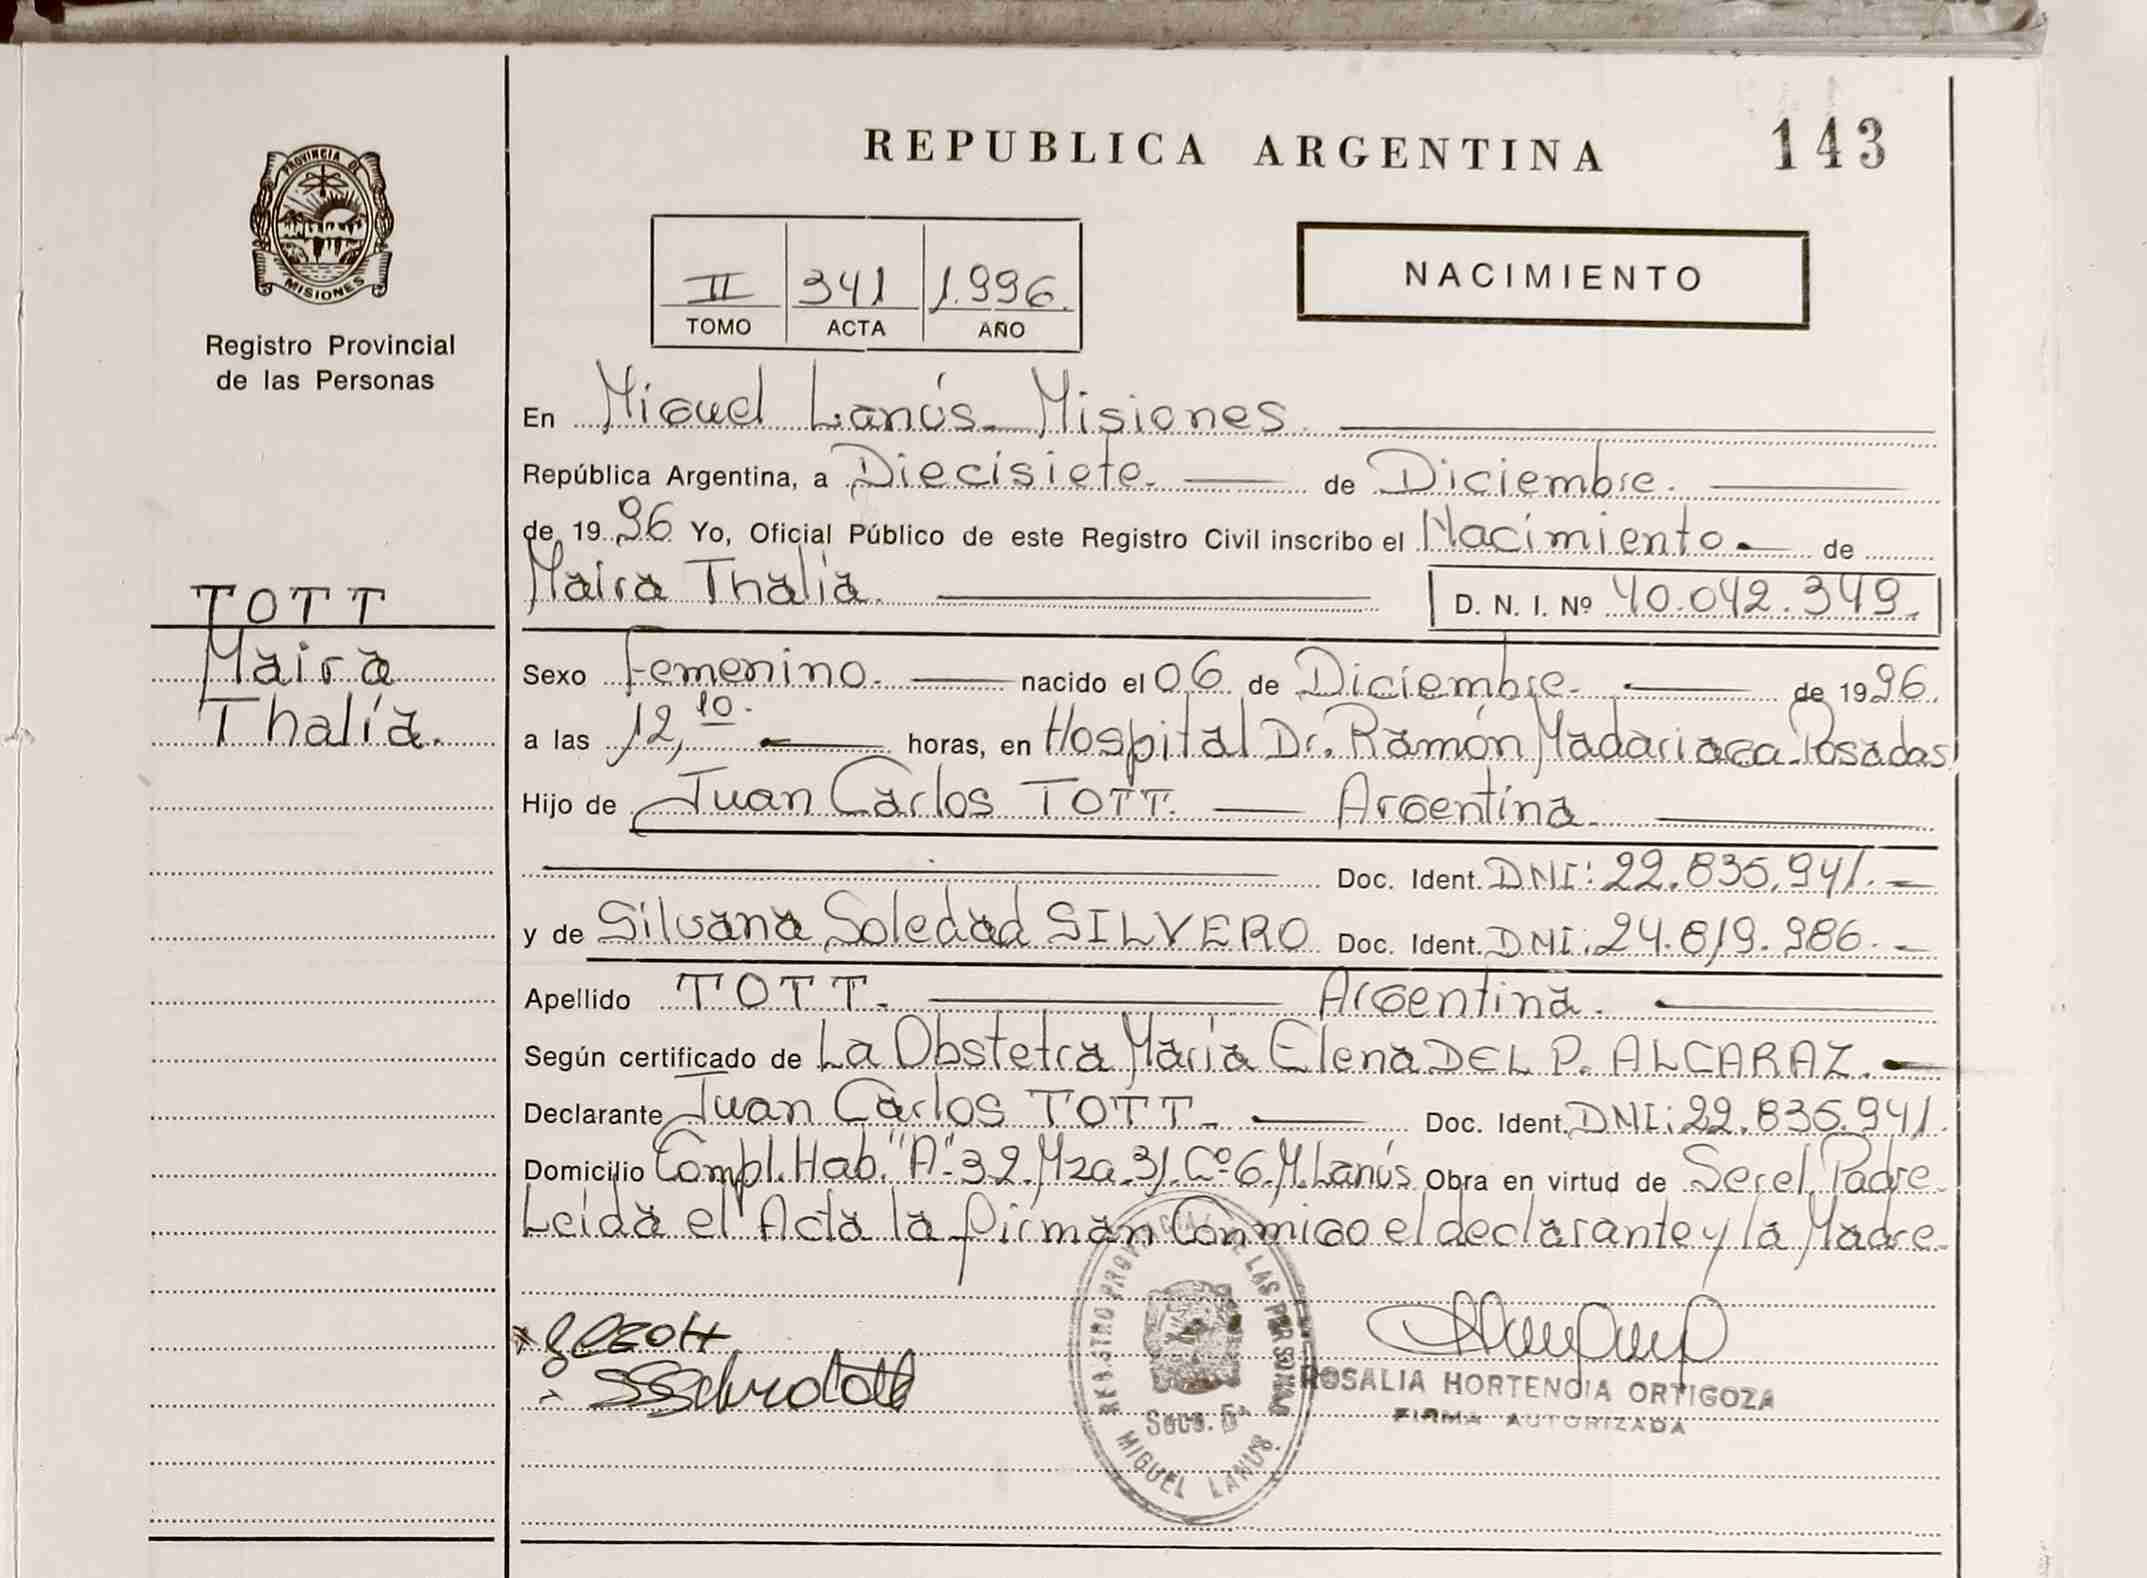 REPUBLICA ARGENTINA
143
PROVINCIA DE
MISIONES
Registro Provincial
de las Personas
II 341 1.996.
TOMO ACTA AÑO
NACIMIENTO
En Miguel Lanús Misiones
República Argentina, a Diecisiete. de Diciembre.
de 1996 Yo, Oficial Público de este Registro Civil inscribo el Nacimiento. de
Maira Thalía. D. N. I. Nº 40.042.349.
TOTT
Maira
Thalía.
Sexo Femenino. nacido el 06 de Diciembre. de 1996.
a las 12,10. horas, en Hospital Dr. Ramón Madariaga Posadas
Hijo de Juan Carlos TOTT. Argentina.
Doc. Ident. DNI: 22.835.941.
y de Silvana Soledad SILVERO Doc. Ident. DNI: 24.819.986.
Apellido TOTT. Argentina.
Según certificado de La Obstetra María Elena DEL P. ALCARAZ.
Declarante Juan Carlos TOTT. Doc. Ident. DNI: 22.835.941.
Domicilio Compl. Hab. "A"-32. Mza. 31. Cº 6. M. Lanús Obra en virtud de Ser el Padre
Leida el Acta la firman Conmigo el declarante y la Madre
REGISTRO PROVINCIAL DE LAS PERSONAS
Secc. 5ª
MIGUEL LANUS
ROSALIA HORTENCIA ORTIGOZA
FIRMA AUTORIZADA